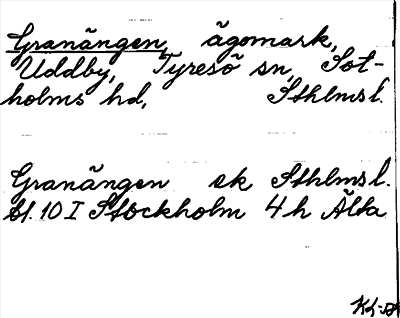 Granängen, ägomark,
Uddby, Tyresö sn, Sot-
holms hd, Sthlmsl.
Granängen ek Sthlmsl.
bl. 10 I Stockholm 4 h Älta